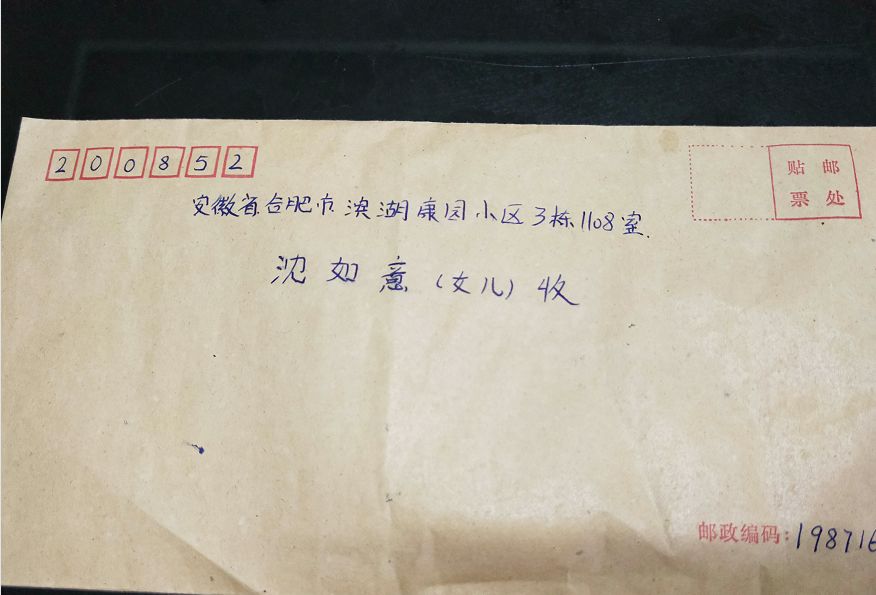 200852
贴邮
票处
安徽省合肥市滨湖康园小区3栋1108室
沈如意(女儿)收
邮政编码:198716